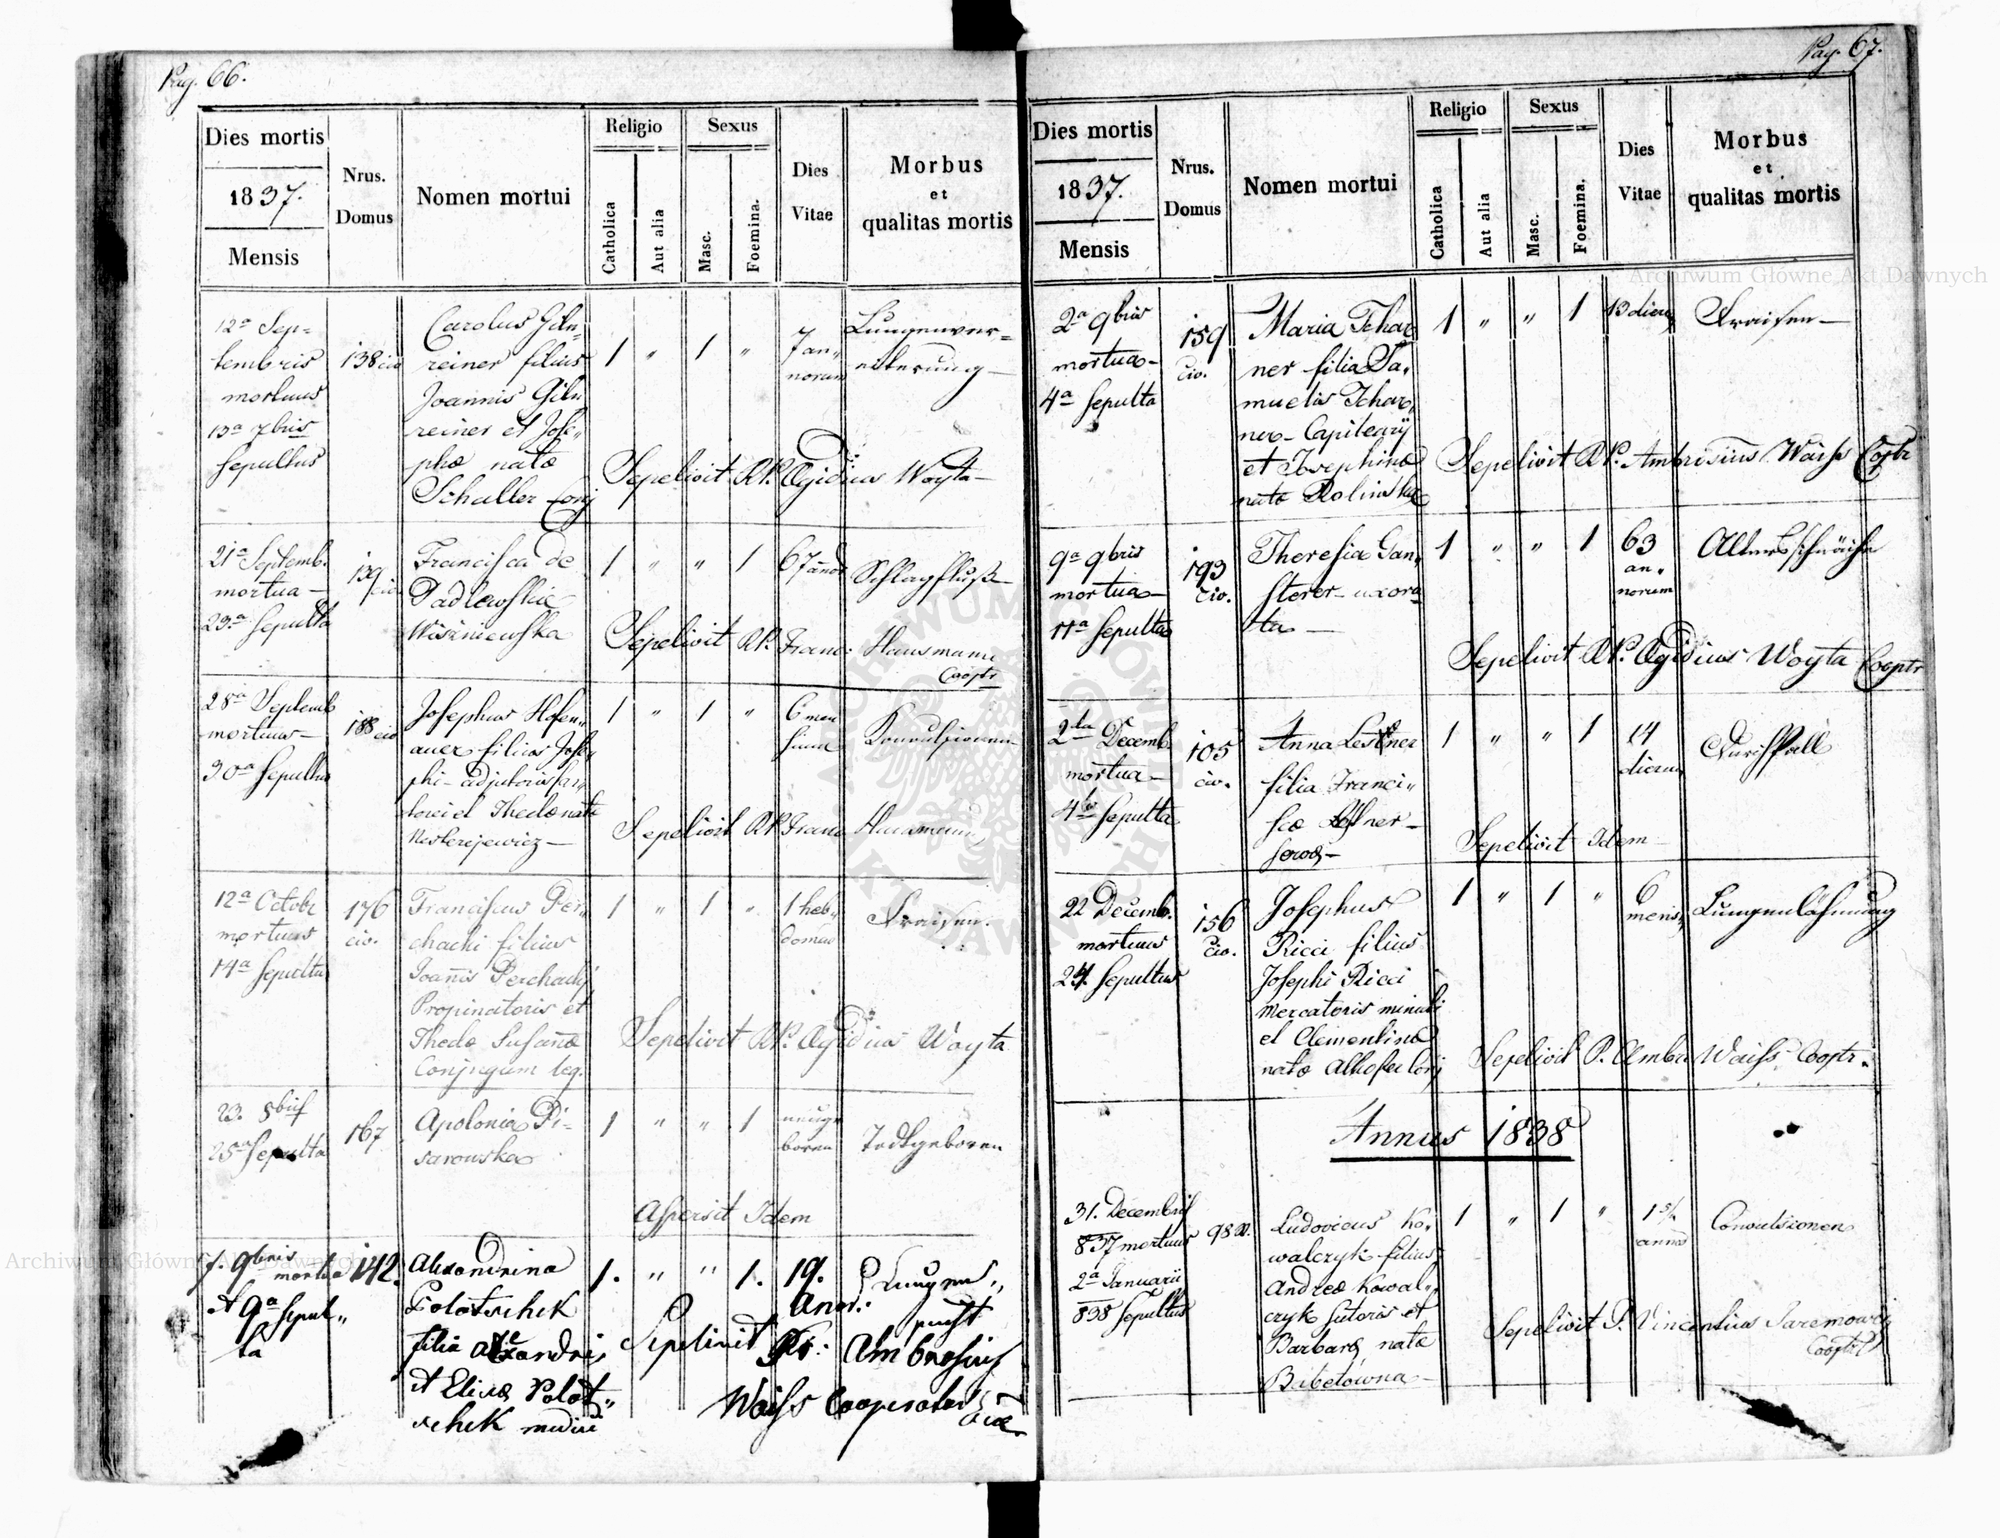 Pag. 66.
Dies mortis
1837.
Mensis
Nrus.
Domus
Nomen mortui
Religio
Catholica
Aut alia
Sexus
Masc.
Foemina.
Dies
Vitae
Morbus
et
qualitas mortis
12a Sep-
tembris
mortuus
13a 7bris
sepultus
138 civ
Carolus
reiner filius
Joannis
reiner et Jose-
pha nata
Schaller Conj
1 " 1 "
7 an-
norum
Lungenver-
eiterung
Sepelivit RP. Aegidius Woyta
21a Septemb.
mortua
23a Sepulta
139 civ.
Francisca de
Padlewskie
Wiszniewska
1 " " 1
67 annor
Schlagfluß
Sepelivit RP. Franc: Hausmann
Cooptr
28a Septemb
mortuus
30a Sepultus
188 civ
Josephus Hofen-
auer filius Jose-
phi adjutoris sar-
torei et Theclae nata
Nesterejewicz
1 " 1 "
6 men
sium
Konvulsionen
Sepelivit RP. Franc Hausmann
12a Octobr
mortuus
14a Sepultus
176
civ.
Franciscus Per-
chachi filius
Joannis Perchachi
Propinatoris et
Theclae Susanna
Conjugum leg.
1 " 1 "
1 heb-
domas
Fraisen.
Sepelivit RP. Aegidius Woyta
23. 8bris
25a Sepulta
167
Apolonia Pi-
sarowska
1 " " 1
neuge
boren
Todtgeboren
Aspersit Idem
7. 9bris mortua
et 9a sepul-
ta
142.
Alexandrina
Polotschek
filia Alexandri
et Elisae Polot-
schek medici
1. " " 1.
19.
Anor.
Lungen-
sucht
Sepelivit Pr: Ambrosius
Waiss Cooperator
Pag. 67.
Dies mortis
1837.
Mensis
Nrus.
Domus
Nomen mortui
Religio
Catholica
Aut alia
Sexus
Masc.
Foemina.
Dies
Vitae
Morbus
et
qualitas mortis
2a 9bris
mortua
4a Sepulta
159
Civ.
Maria Tschar
ner filia Sa-
muelis Tschar
ner Capitearij
et Josephina
nata Rolinska
1 " " 1
13 dierum
Fraisen
Sepelivit RP. Ambrosius Waiss Cooptr
9a 9bris
mortua
11a Sepulta
193
Civ.
Theresia Gan-
sterer uxora
ta
1 " " 1
63
an-
norum
Altersschwäche
Sepelivit RP. Aegidius Woyta Cooptr
2da Decemb.
mortua
4ta Sepulta
105
civ.
Anna Lestner
filia Franci-
scae Lestner
1 " " 1
14
dierum
Durchfall
Sepelivit Idem
22 Decemb.
mortuus
24. Sepultus
156
Civ.
Josephus
Ricci filius
Josephi Ricci
Mercatoris minuti
et Clementinae
nata Conj
1 " 1 "
6
mens.
Lungenlähmung
Sepelivit P. Ambr Waiss Cooptr.
Annus 1838
31. Decembris
837 mortuus
2a Januarii
838 Sepultus
98
Ludovicus Ko-
walczyk filius
Andreae Kowal-
czyk sutoris et
Barbara nata
Bibetowna
1 " 1 "
anno
Convulsionen
Sepelivit P. Vincentius Saremowicz
Cooptr
Archiwum Główne Akt Dawnych
Archiwum Główne Akt Dawnych
ARCHIWUM GŁÓWNE AKT DAWNYCH